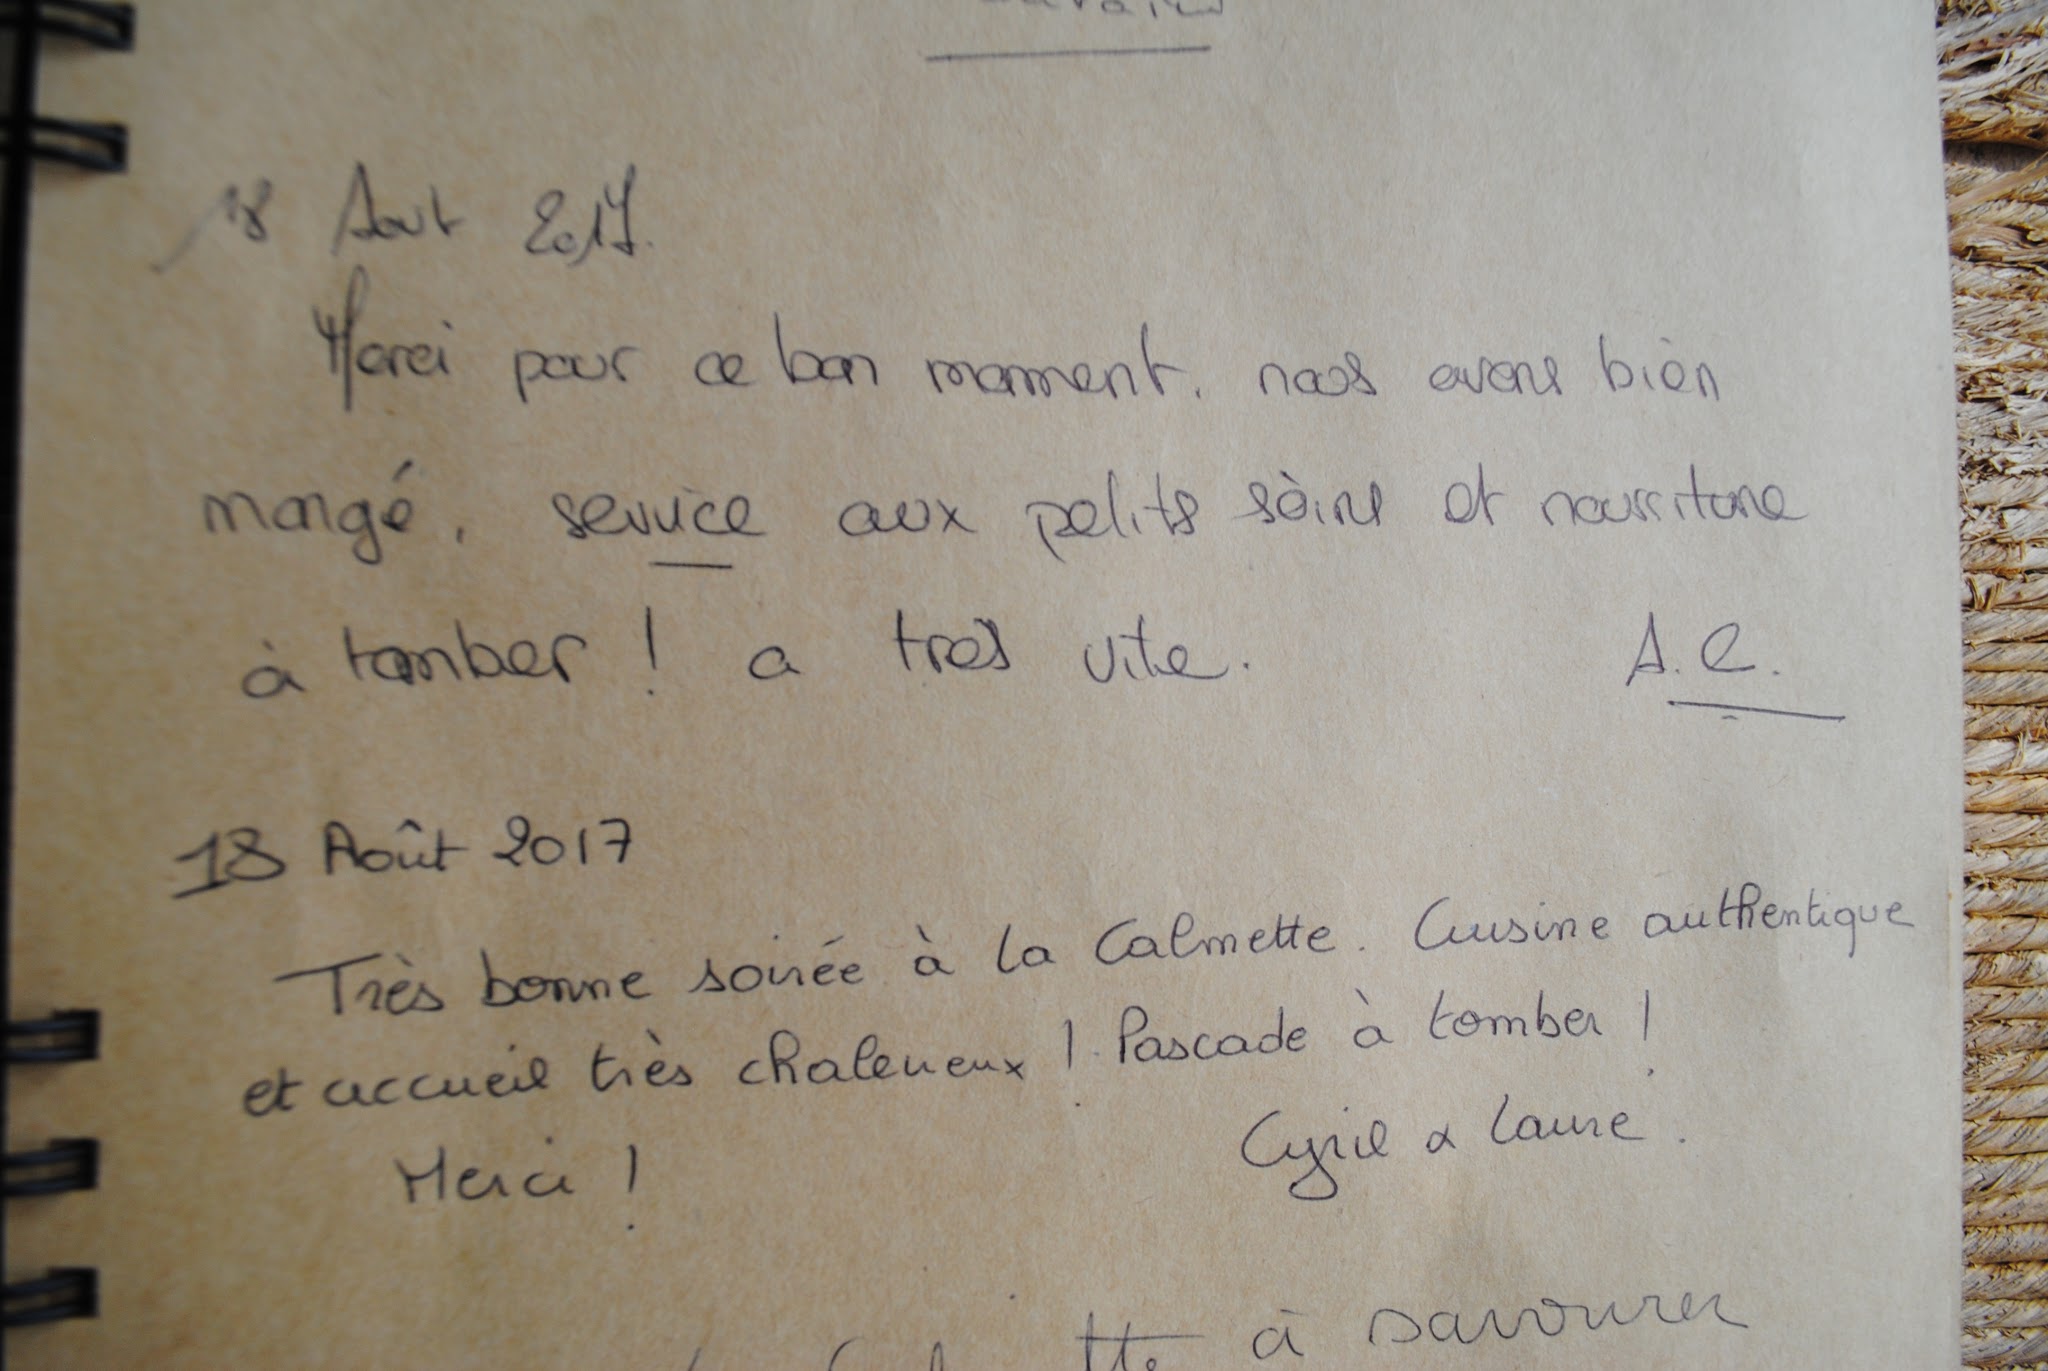 18 Aout 2017.
Merci pour ce bon moment. nous avons bien
mangé, service aux petits soins et nourriture
à tomber ! a très vite. A.C.
18 Août 2017
Très bonne soirée à la Calmette. Cuisine authentique
et accueil très chaleureux ! Pascade à tomber !
Merci ! Cyril & Laure.
à savourer